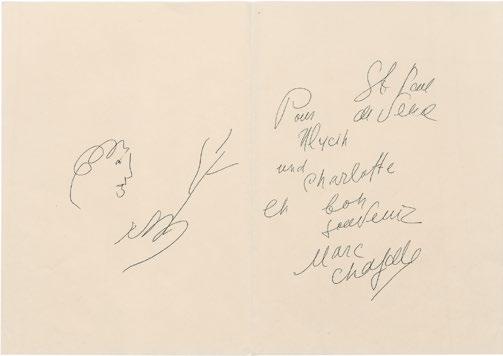 St Paul
Pour de Vence
und Charlotte
en bon
souvenir
Marc
Chagall